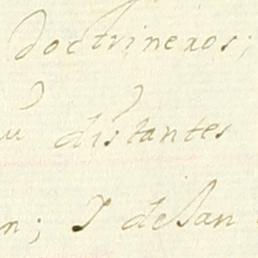 doctrineros;
distantes
n; Y desan